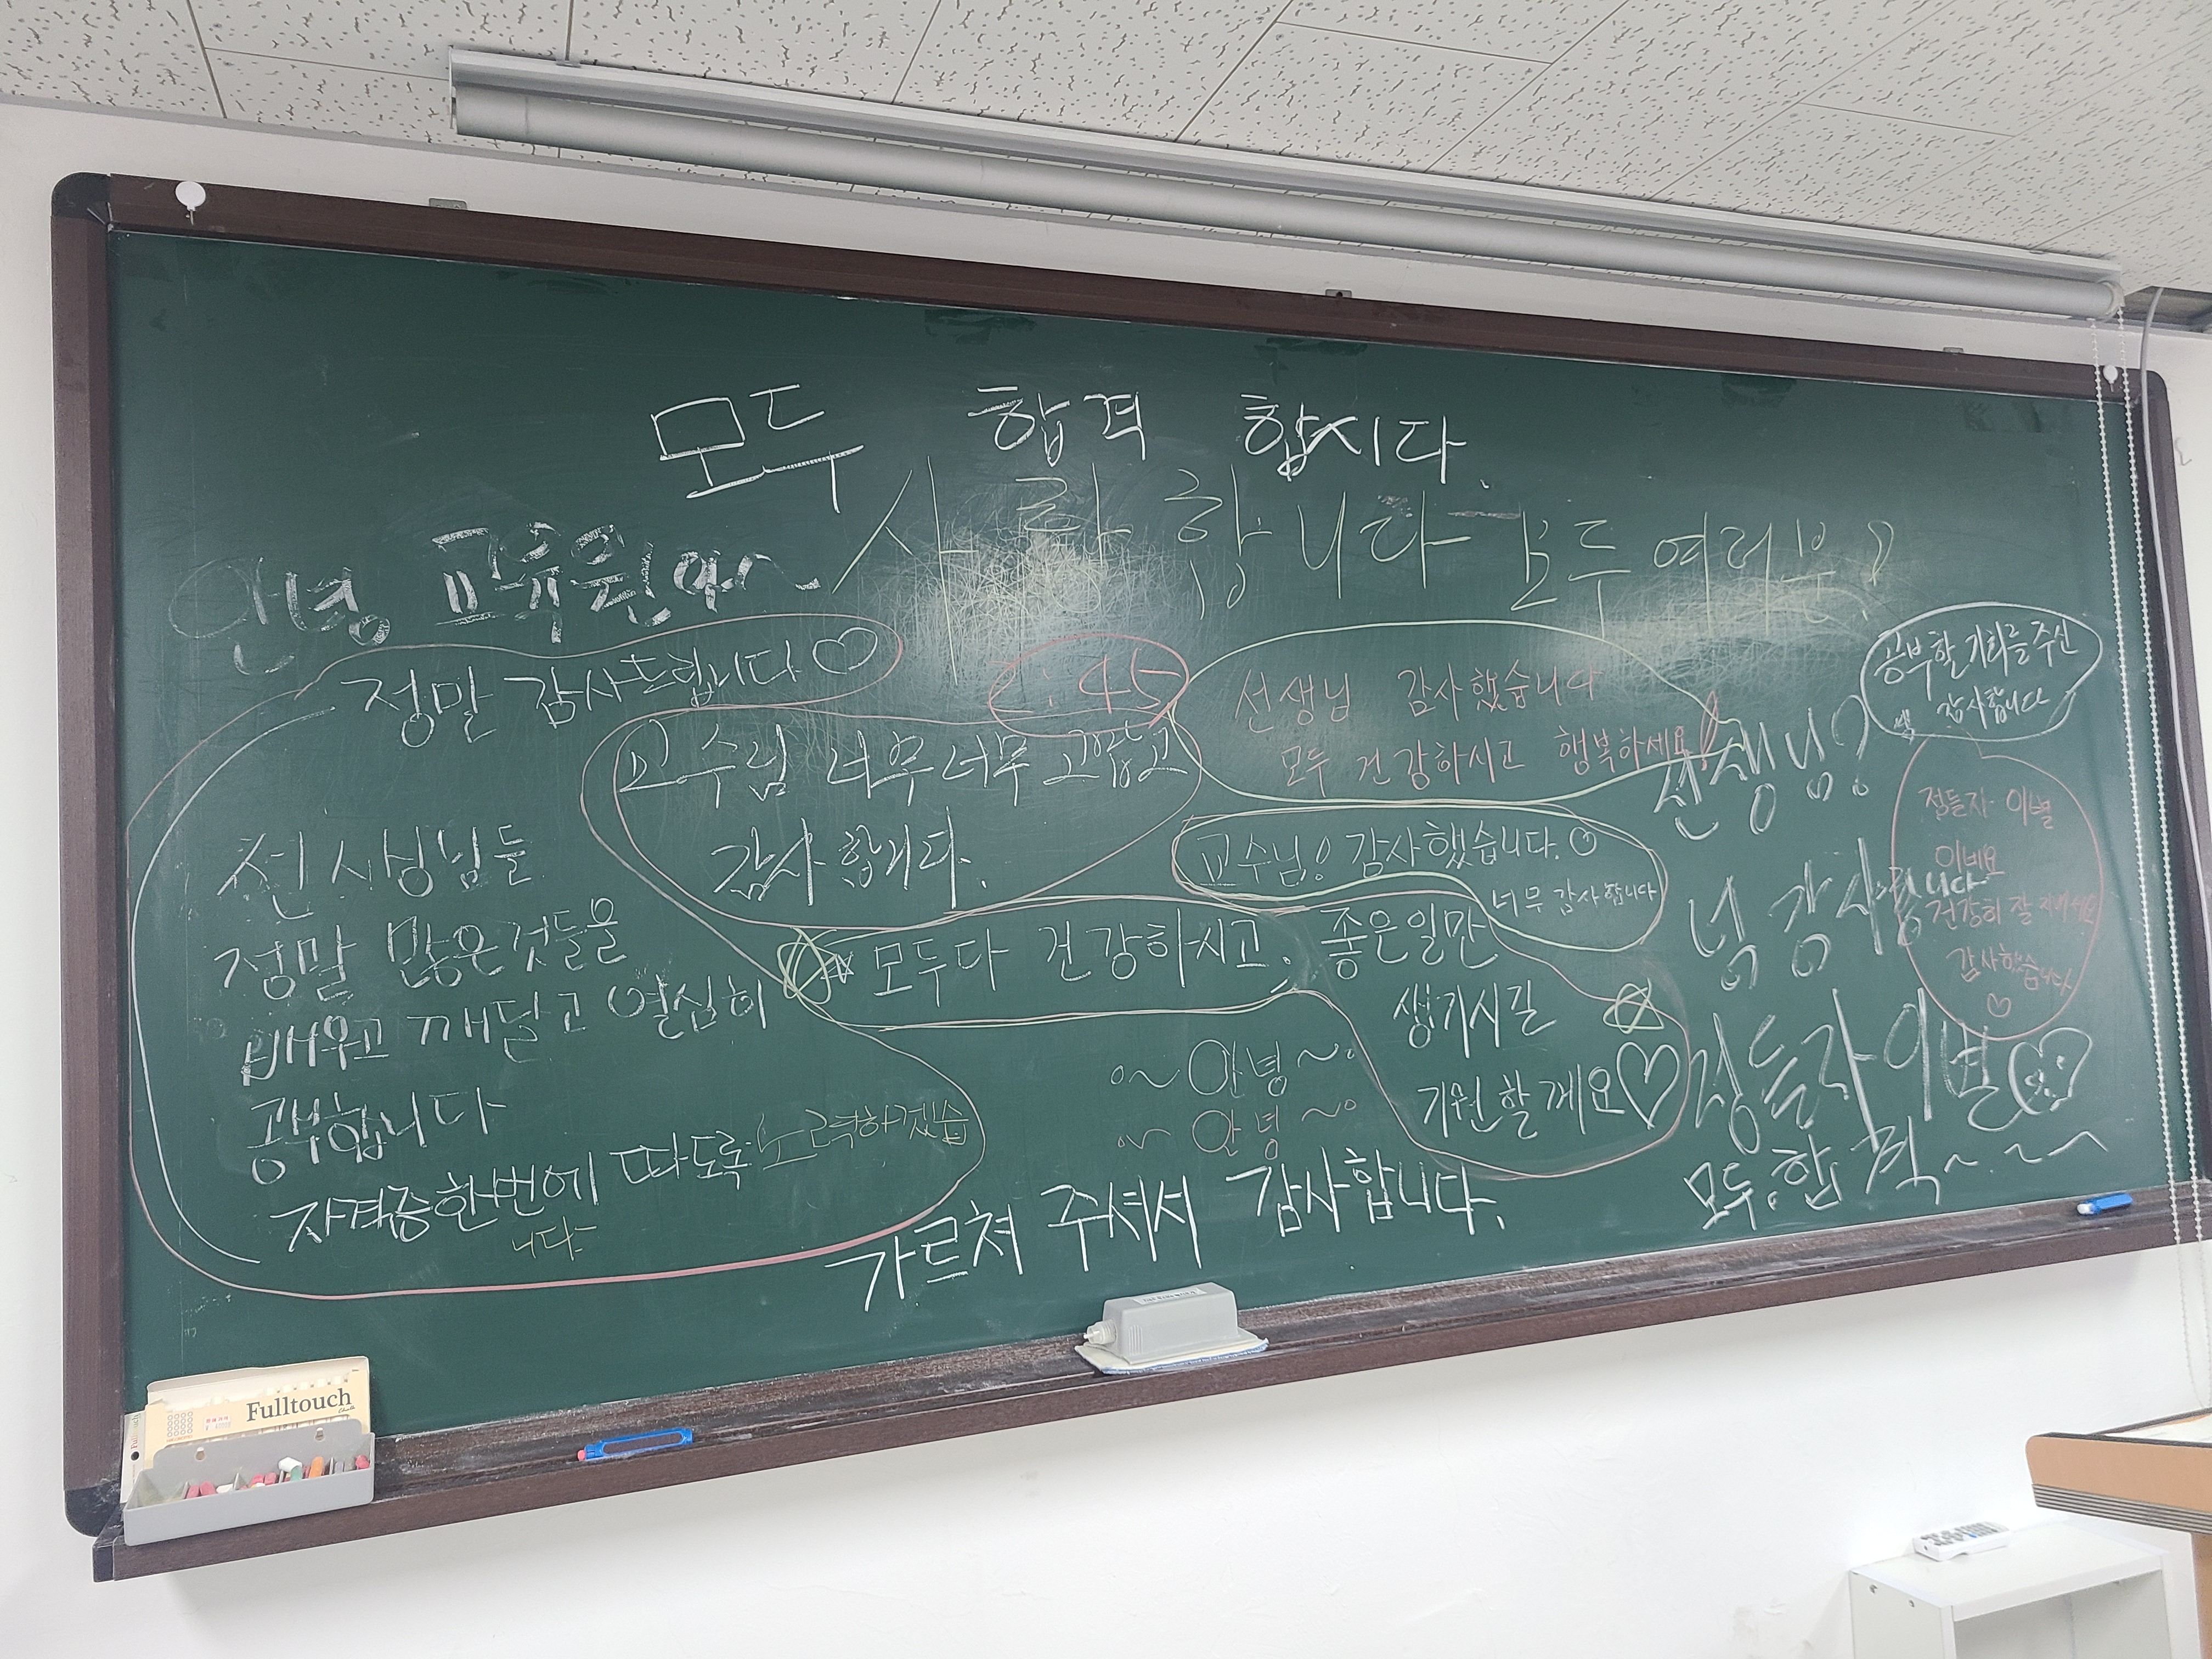 모두 합격 합시다.
사랑합니다 모두 여러분?
안녕 교육원
정말 감사드립니다 ♡
선생님들
정말 많은것들을
배우고 깨달고 열심히
공부합니다
자격증한번에 따도록 노력하겠습
니다
: 45
교수님 너무너무 고맙고
감사합니다.
선생님 감사했습니다
모두 건강하시고 행복하세요
교수님! 감사했습니다.
너무 감사합니다
☆ 모두다 건강하시고. 좋은일만
생기시길
기원할게요 ♡
~안녕~
~안녕~
가르쳐 주셔서 감사합니다.
공부할 기회를 주신
감사합니다
선생님?
넘 감사합니다
정들자 이별
모두.합격~~~
정들자 이별
이네요
건강히 잘
감사했습니다
♡
Fulltouch
Chalk